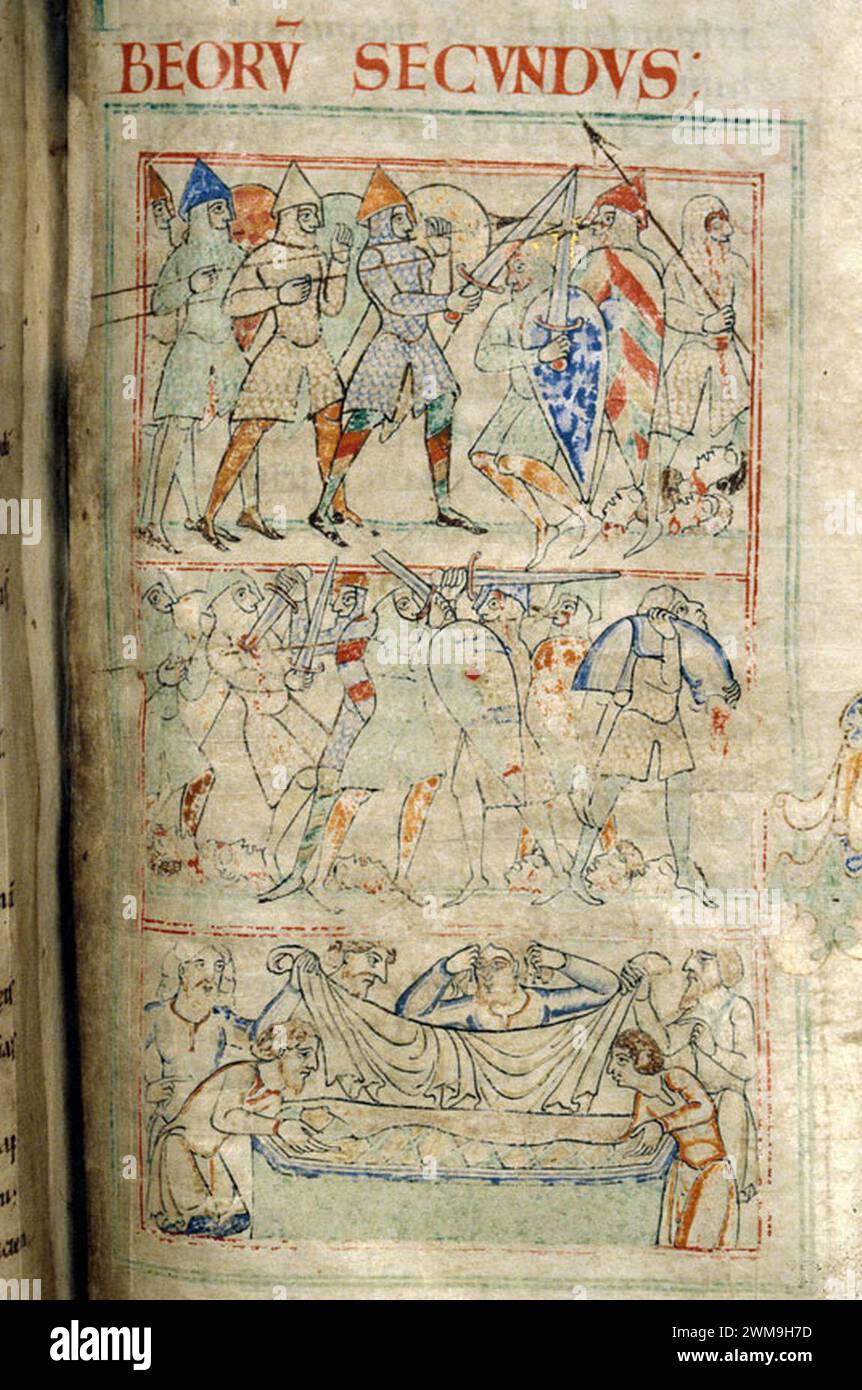 BEORṼ SECVNDVS:
alamy
Image ID: 2WM9H7D
www.alamy.com